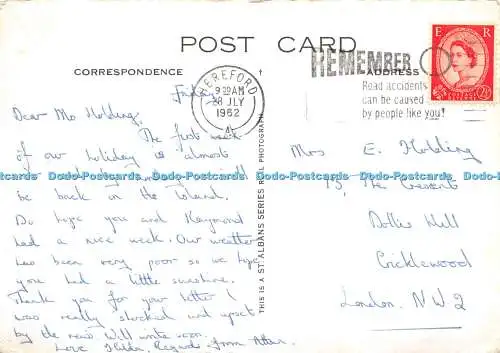 POST CARD
CORRESPONDENCE
ADDRESS
HEREFORD
9 30 AM
28 JLY
1962
A
REMEMBER
Road accidents
can be caused
by people like you!
E R
Friday
Dear Mrs Holding,
The first week
of our holiday is almost
be back in the Island.
Do hope you and Raymond
had a nice week. Our weather
has been very poor so we hope
you had a little sunshine.
Thank you for your letter I
was really shocked and upset
by the news Will write soon.
Love Hilda. Regards from Allan
Mrs E. Holding
15, The Crescent
Dollis Hill
Cricklewood
London. N W 2
THIS IS A ST. ALBANS SERIES REAL PHOTOGRAPH
Dodo-Postcards Dodo-Postcards Dodo-Postcards Dodo-Postcards